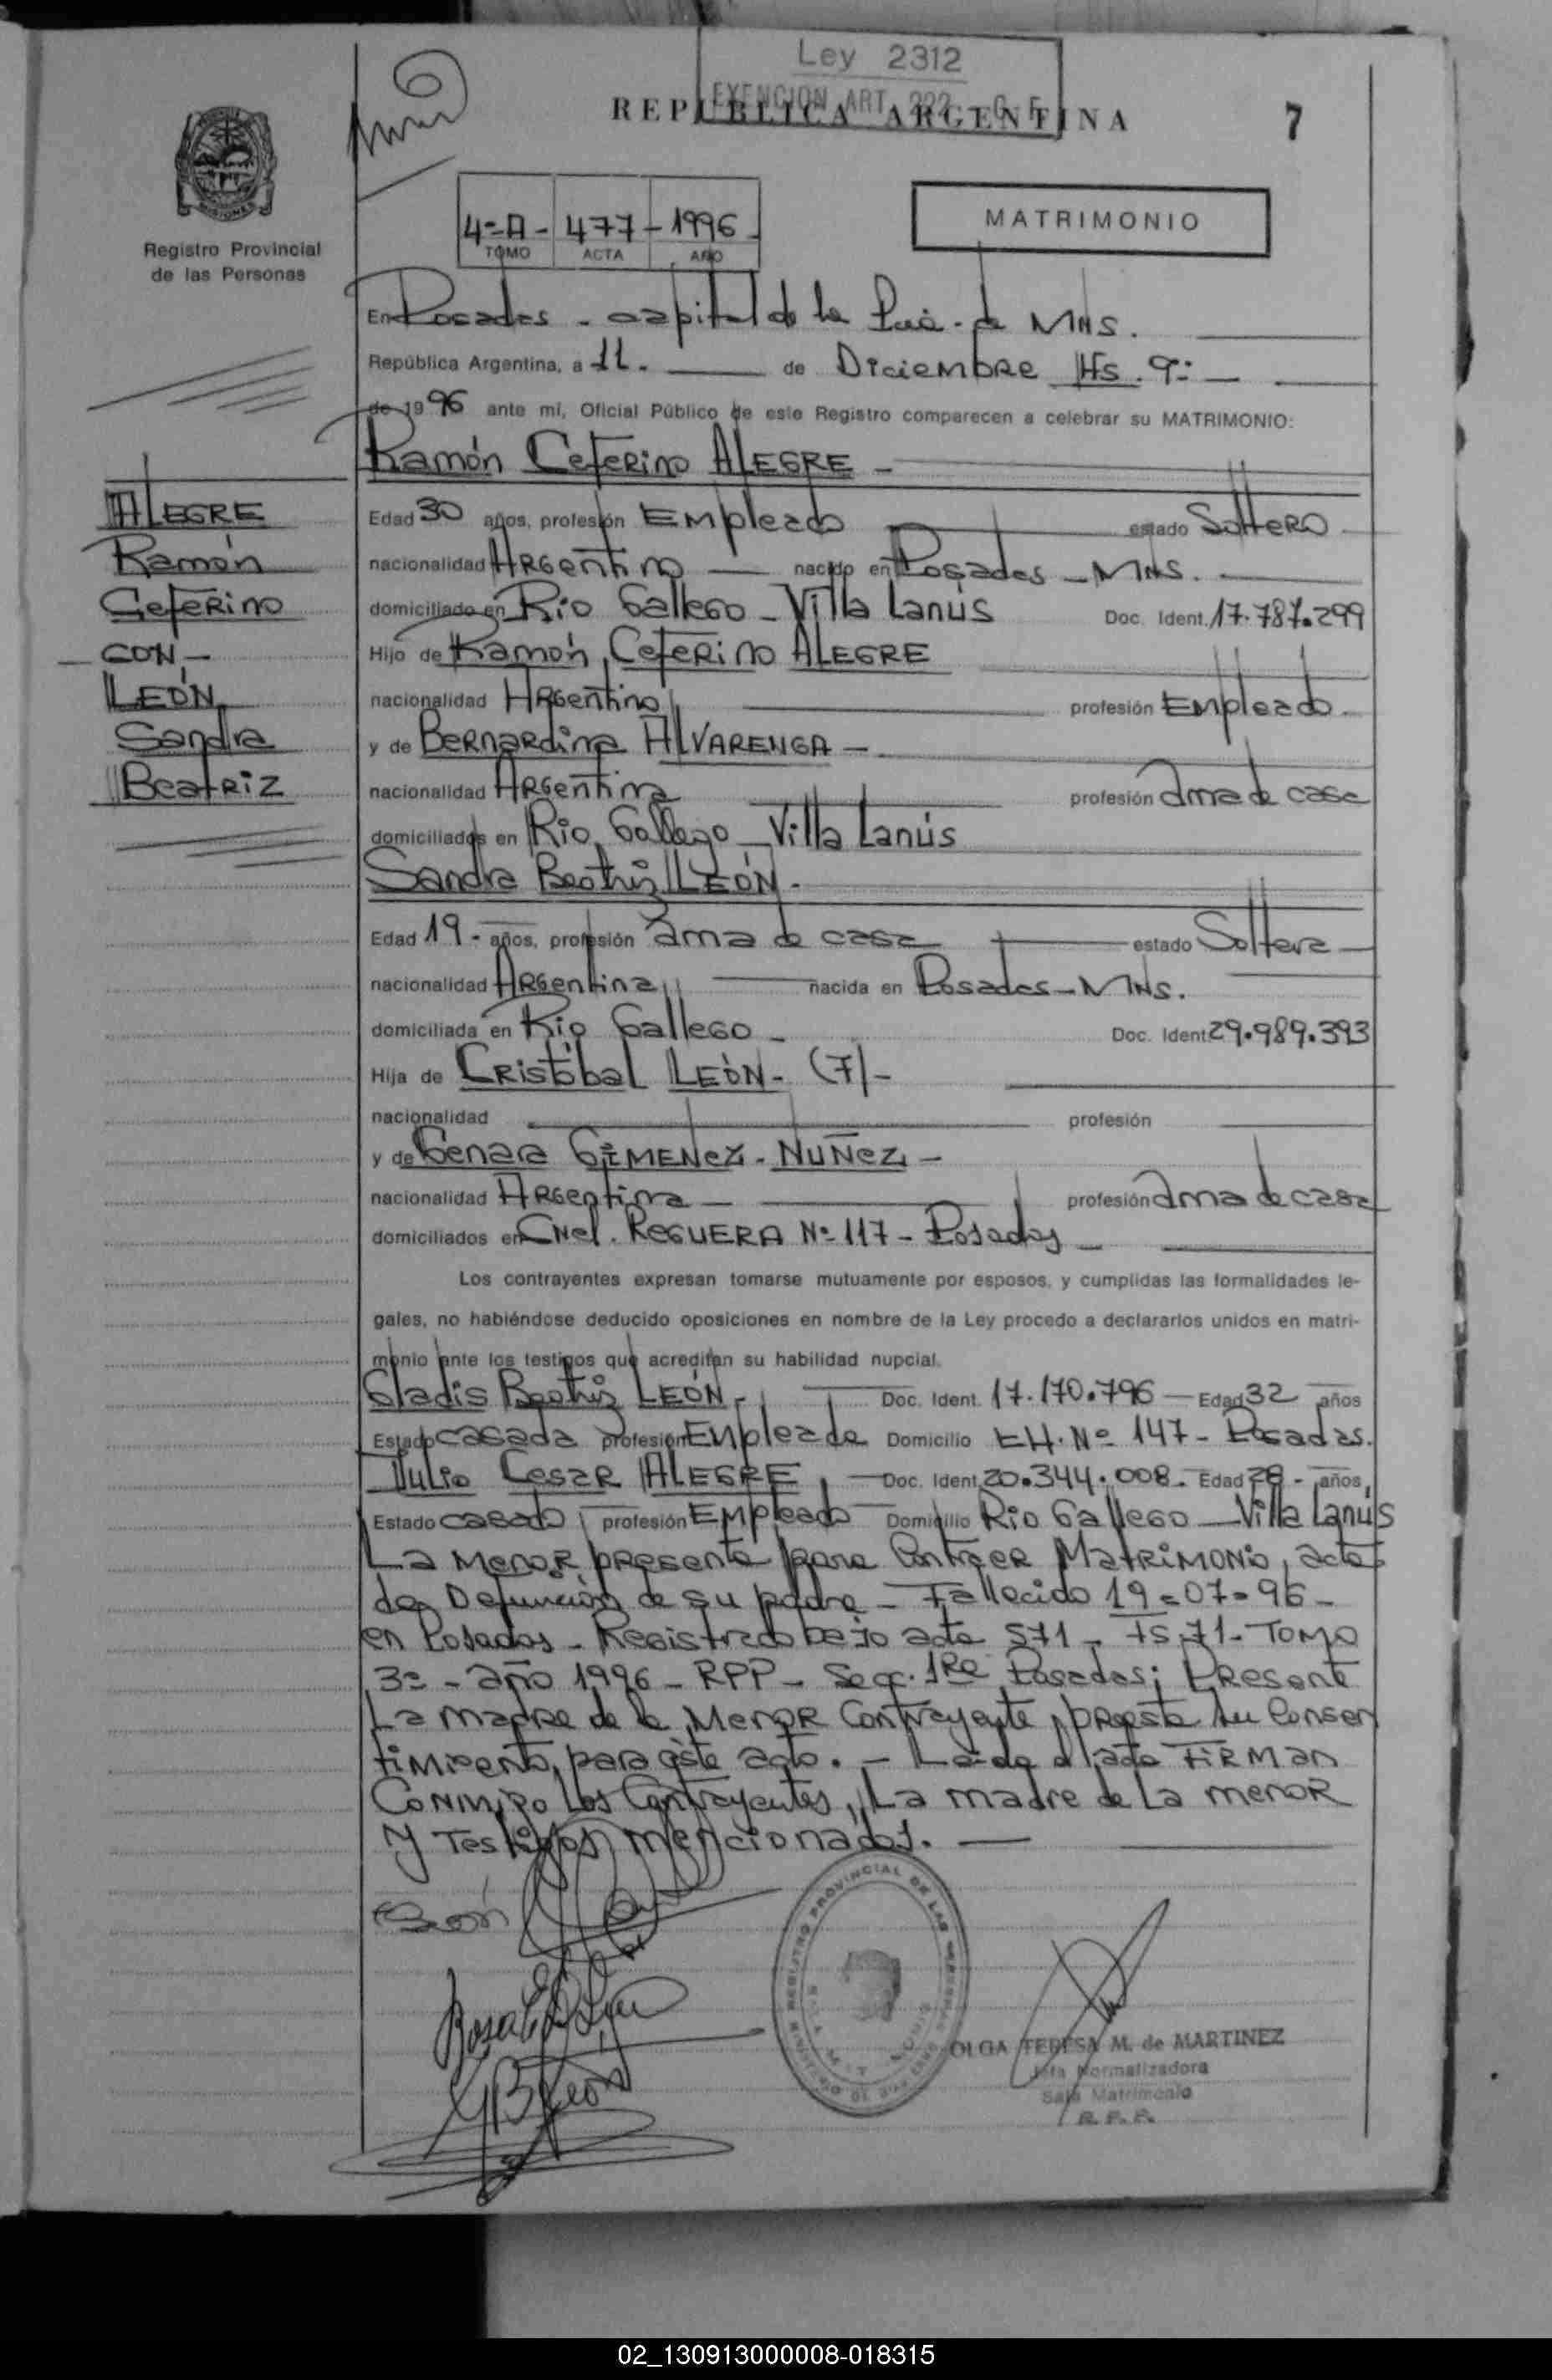 Ley 2312
EXENCION ART. 222 C. F.
REPUBLICA ARGENTINA
7
MISIONES
Registro Provincial
de las Personas
4º-A- 477- 1996-
TOMO ACTA AÑO
MATRIMONIO
En Posadas - capital de la Pcia. de MNS.
República Argentina, a 11.- de Diciembre Hs. 9:-
de 1996 ante mí, Oficial Público de este Registro comparecen a celebrar su MATRIMONIO:
Ramón Ceferino ALEGRE -
ALEGRE
Ramón
Ceferino
- CON -
LEÓN,
Sandra
Beatriz
Edad 30 años, profesión Empleado estado Soltero
nacionalidad Argentino - nacido en Posadas - MNS.
domiciliado en Rio Gallego - Villa Lanús Doc. Ident. 17.787.299
Hijo de Ramón, Ceferino ALEGRE
nacionalidad Argentino profesión Empleado.
y de Bernardina ALVARENGA -
nacionalidad Argentina profesión ama de casa
domiciliados en Rio Gallego - Villa Lanús
Sandra Beatriz LEÓN -
Edad 19 - años, profesión ama de casa estado Soltera
nacionalidad Argentina nacida en Posadas - MNS.
domiciliada en Rio Gallego - Doc. Ident. 29.989.393
Hija de Cristóbal LEÓN - (F) -
nacionalidad profesión
y de Genara GIMENEZ - NUÑEZ -
nacionalidad Argentina - profesión ama de casa
domiciliados en Cnel. REGUERA Nº 117 - Posadas -
Los contrayentes expresan tomarse mutuamente por esposos, y cumplidas las formalidades le-
gales, no habiéndose deducido oposiciones en nombre de la Ley procedo a declararlos unidos en matri-
monio ante los testigos que acreditan su habilidad nupcial.
Gladis Beatriz LEÓN - Doc. Ident. 17.170.796 - Edad 32 años
Estado casada profesión Empleada Domicilio CH. Nº 147 - Posadas.
Julio Cesar ALEGRE, - Doc. Ident. 20.344.008 - Edad 28 - años,
Estado casado profesión Empleado Domicilio Rio Gallego - Villa Lanús
La menor, presenta para Contraer Matrimonio, acta
de Defunción de su padre - Fallecido 19-07-96 -
en Posadas - Registrado bajo acta 571 - FS. 71 - TOMO
3º - año 1996 - RPP - Secc. 1ra Posadas; Presente
La madre de la Menor Contrayente, presta su Consen
timiento, para éste acto. - Leída el acta FIRMAN
Conmigo Los Contrayentes, La madre de La menor
y Testigos mencionados. -
León
OLGA TERESA M. de MARTINEZ
Jefa Normalizadora
Sala Matrimonio
R. P. P.
02_130913000008-018315